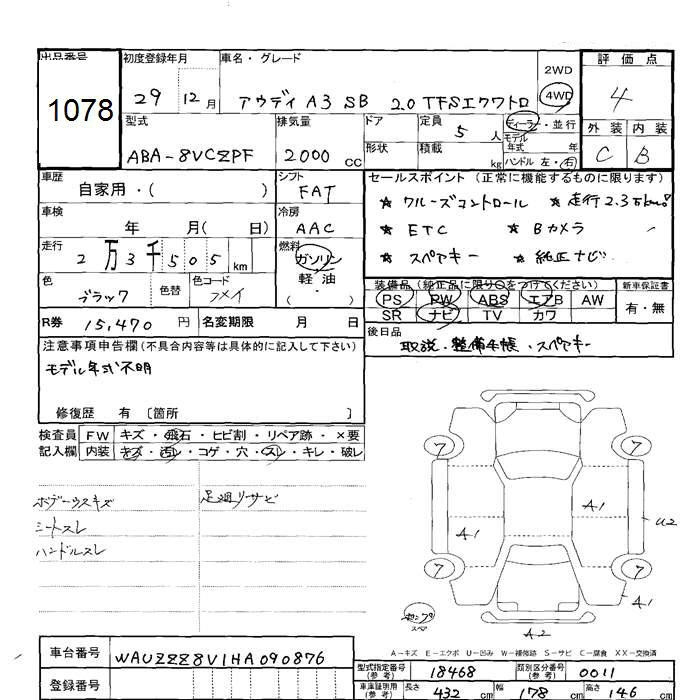 出品番号
1078
初度登録年月
29 12月
車名・グレード
アウディ A3 SB 2.0 TFSIクワトロ
2WD
4WD
評価点
4
外装 内装
C B
型式
ABA-8VCZPF
排気量
2000 cc
ドア
形状
定員 5 人
積載 kg
ディーラー・並行
モデル年式 年
ハンドル 左・右
車歴
自家用・( )
シフト
FAT
車検
年 月( 日)
冷房
AAC
走行
2万3千505km
燃料
ガソリン
軽油
( )
色
ブラック
色替
色コード
R券 15,470 円
名変期限 月 日
セールスポイント(正常に機能するものに限ります)
★ クルーズコントロール ★ 走行2.3万km
★ ETC ★ Bカメラ
★ スペアキー ★ 純正ナビ
装備品(純正品に限り○をつけてください)
PS PW ABS エアB AW
SR ナビ TV カワ
新車保証書
有・無
後日品
取説・整備手帳・スペアキー
注意事項申告欄(不具合内容等は具体的に記入して下さい)
モデル年式不明
修復歴 有 〔箇所 〕
検査員記入欄
FW キズ・飛石・ヒビ割・リペア跡・×要
内装 キズ・汚レ・コゲ・穴・スレ・キレ・破レ
ボデーウスキズ
シートスレ
ハンドルスレ
足廻リサビ
7 7
A1 A1 U2
7 7
A1
スペア
A2
A-キズ E-エクボ U-凹み W-補修跡 S-サビ C-腐食 XX-交換済
車台番号 WAUZZZ8V1HA090876
登録番号
型式指定番号(参考) 18468
類別区分番号(参考) 0011
車庫証明用(参考) 長さ 432 cm 幅 178 cm 高さ 146 cm